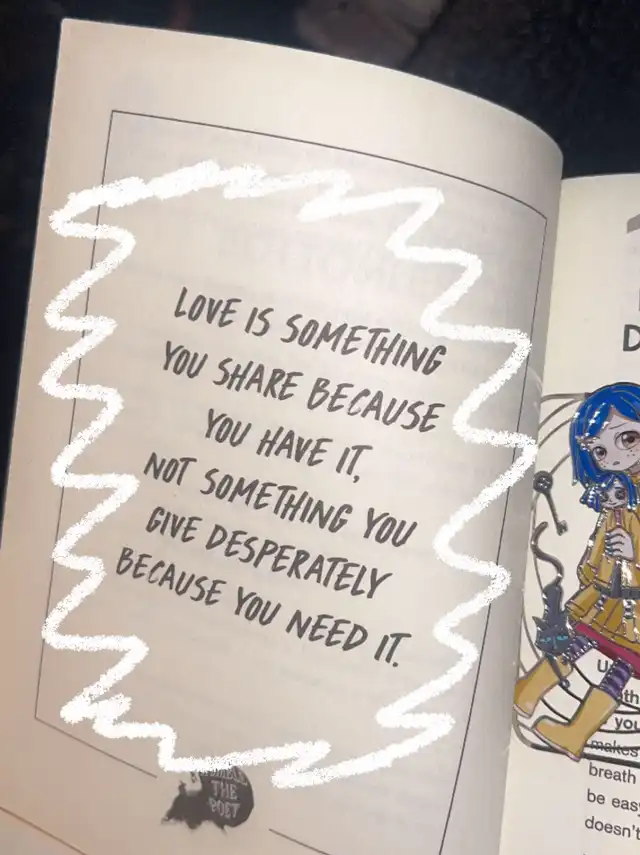 LOVE IS SOMETHING
YOU SHARE BECAUSE
YOU HAVE IT,
NOT SOMETHING YOU
GIVE DESPERATELY
BECAUSE YOU NEED IT.
THE
POET
D
you
makes
breath
be easy
doesn't